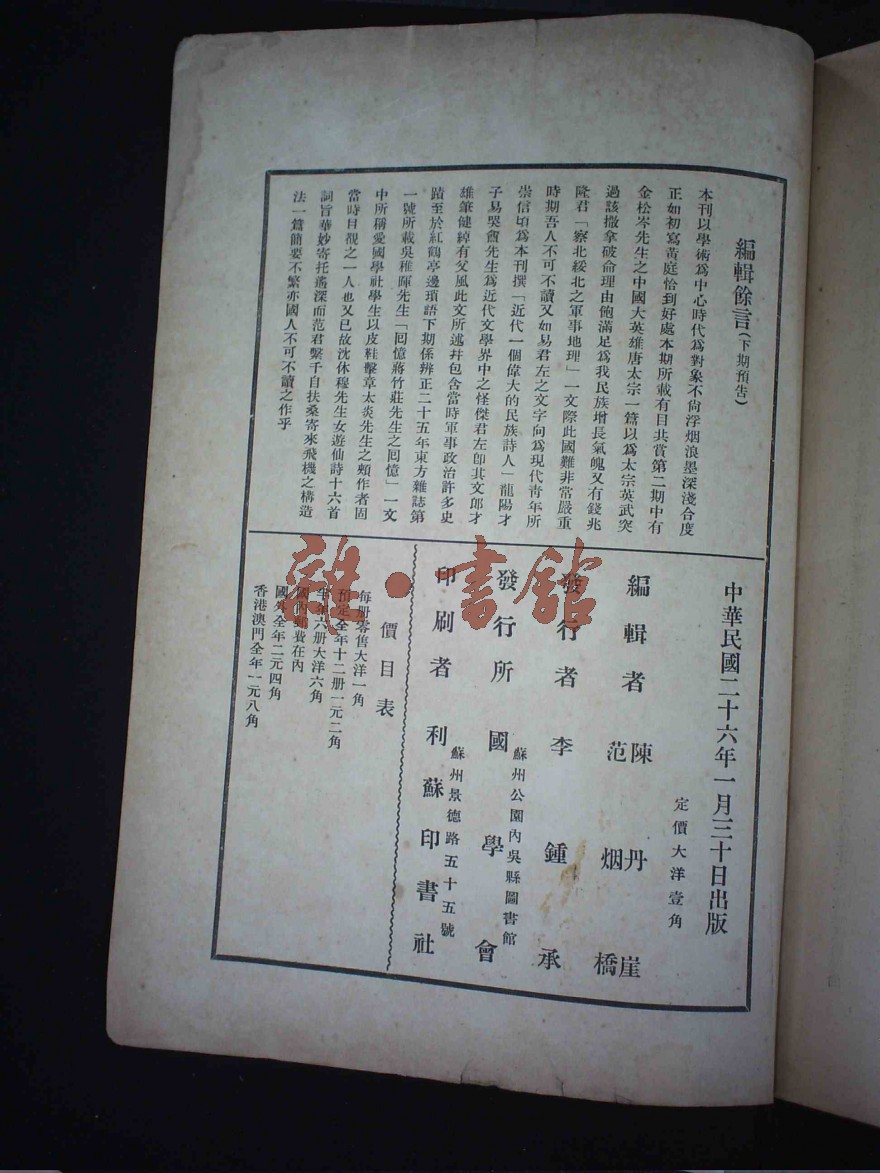 編輯餘言(下期預告)
本刊以學術爲中心時代爲對象不尙浮烟浪墨深淺合度
正如初寫黃庭恰到好處本期所載有目共賞第二期中有
金松岑先生之中國大英雄唐太宗一篇以爲太宗英武突
過該撒拿破侖理由飽滿足爲我民族增長氣魄又有錢兆
隆君「察北綏北之軍事地理」一文際此國難非常嚴重
時期吾人不可不讀又如易君左之文字向爲現代靑年所
崇信頃爲本刊撰「近代一個偉大的民族詩人」龍陽才
子易哭盦先生爲近代文學界中之怪傑君左卽其文郎才
雄筆健綽有父風此文所述幷包含當時軍事政治許多史
蹟至於紅鶴亭邊瑣語下期係辨正二十五年東方雜誌第
一號所載吳稚暉先生「回憶蔣竹莊先生之回憶」一文
中所稱愛國學社學生以皮鞋擊章太炎先生之頰作者固
當時目覩之一人也又已故沈休穆先生女遊仙詩十六首
詞旨華妙寄托遙深而范君繫千自扶桑寄來飛機之構造
法一篇簡要不繁亦國人不可不讀之作乎
中華民國二十六年一月三十日出版
定價大洋壹角
編輯者 陳丹崖
范烟橋
發行者 李鍾承
蘇州公園內吳縣圖書館
發行所 國學會
蘇州景德路五十五號
印刷者 利蘇印書社
價目表
每册零售大洋一角
預定全年十二册一元二角
半年六册大洋六角
國內郵費在內
國外全年二元四角
香港澳門全年一元八角
雜·書館